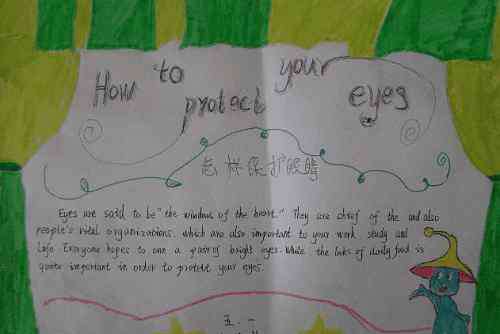 How to protect your eyes
怎样保护眼睛
Eyes are said to be "the windows of the heart." They are chief of the and also
people's vital organizations. which are also important to your work study and
life. Everyone hopes to one a pair of bright eyes. While the looks of daily food is
quite important in order to protect your eyes.
五一